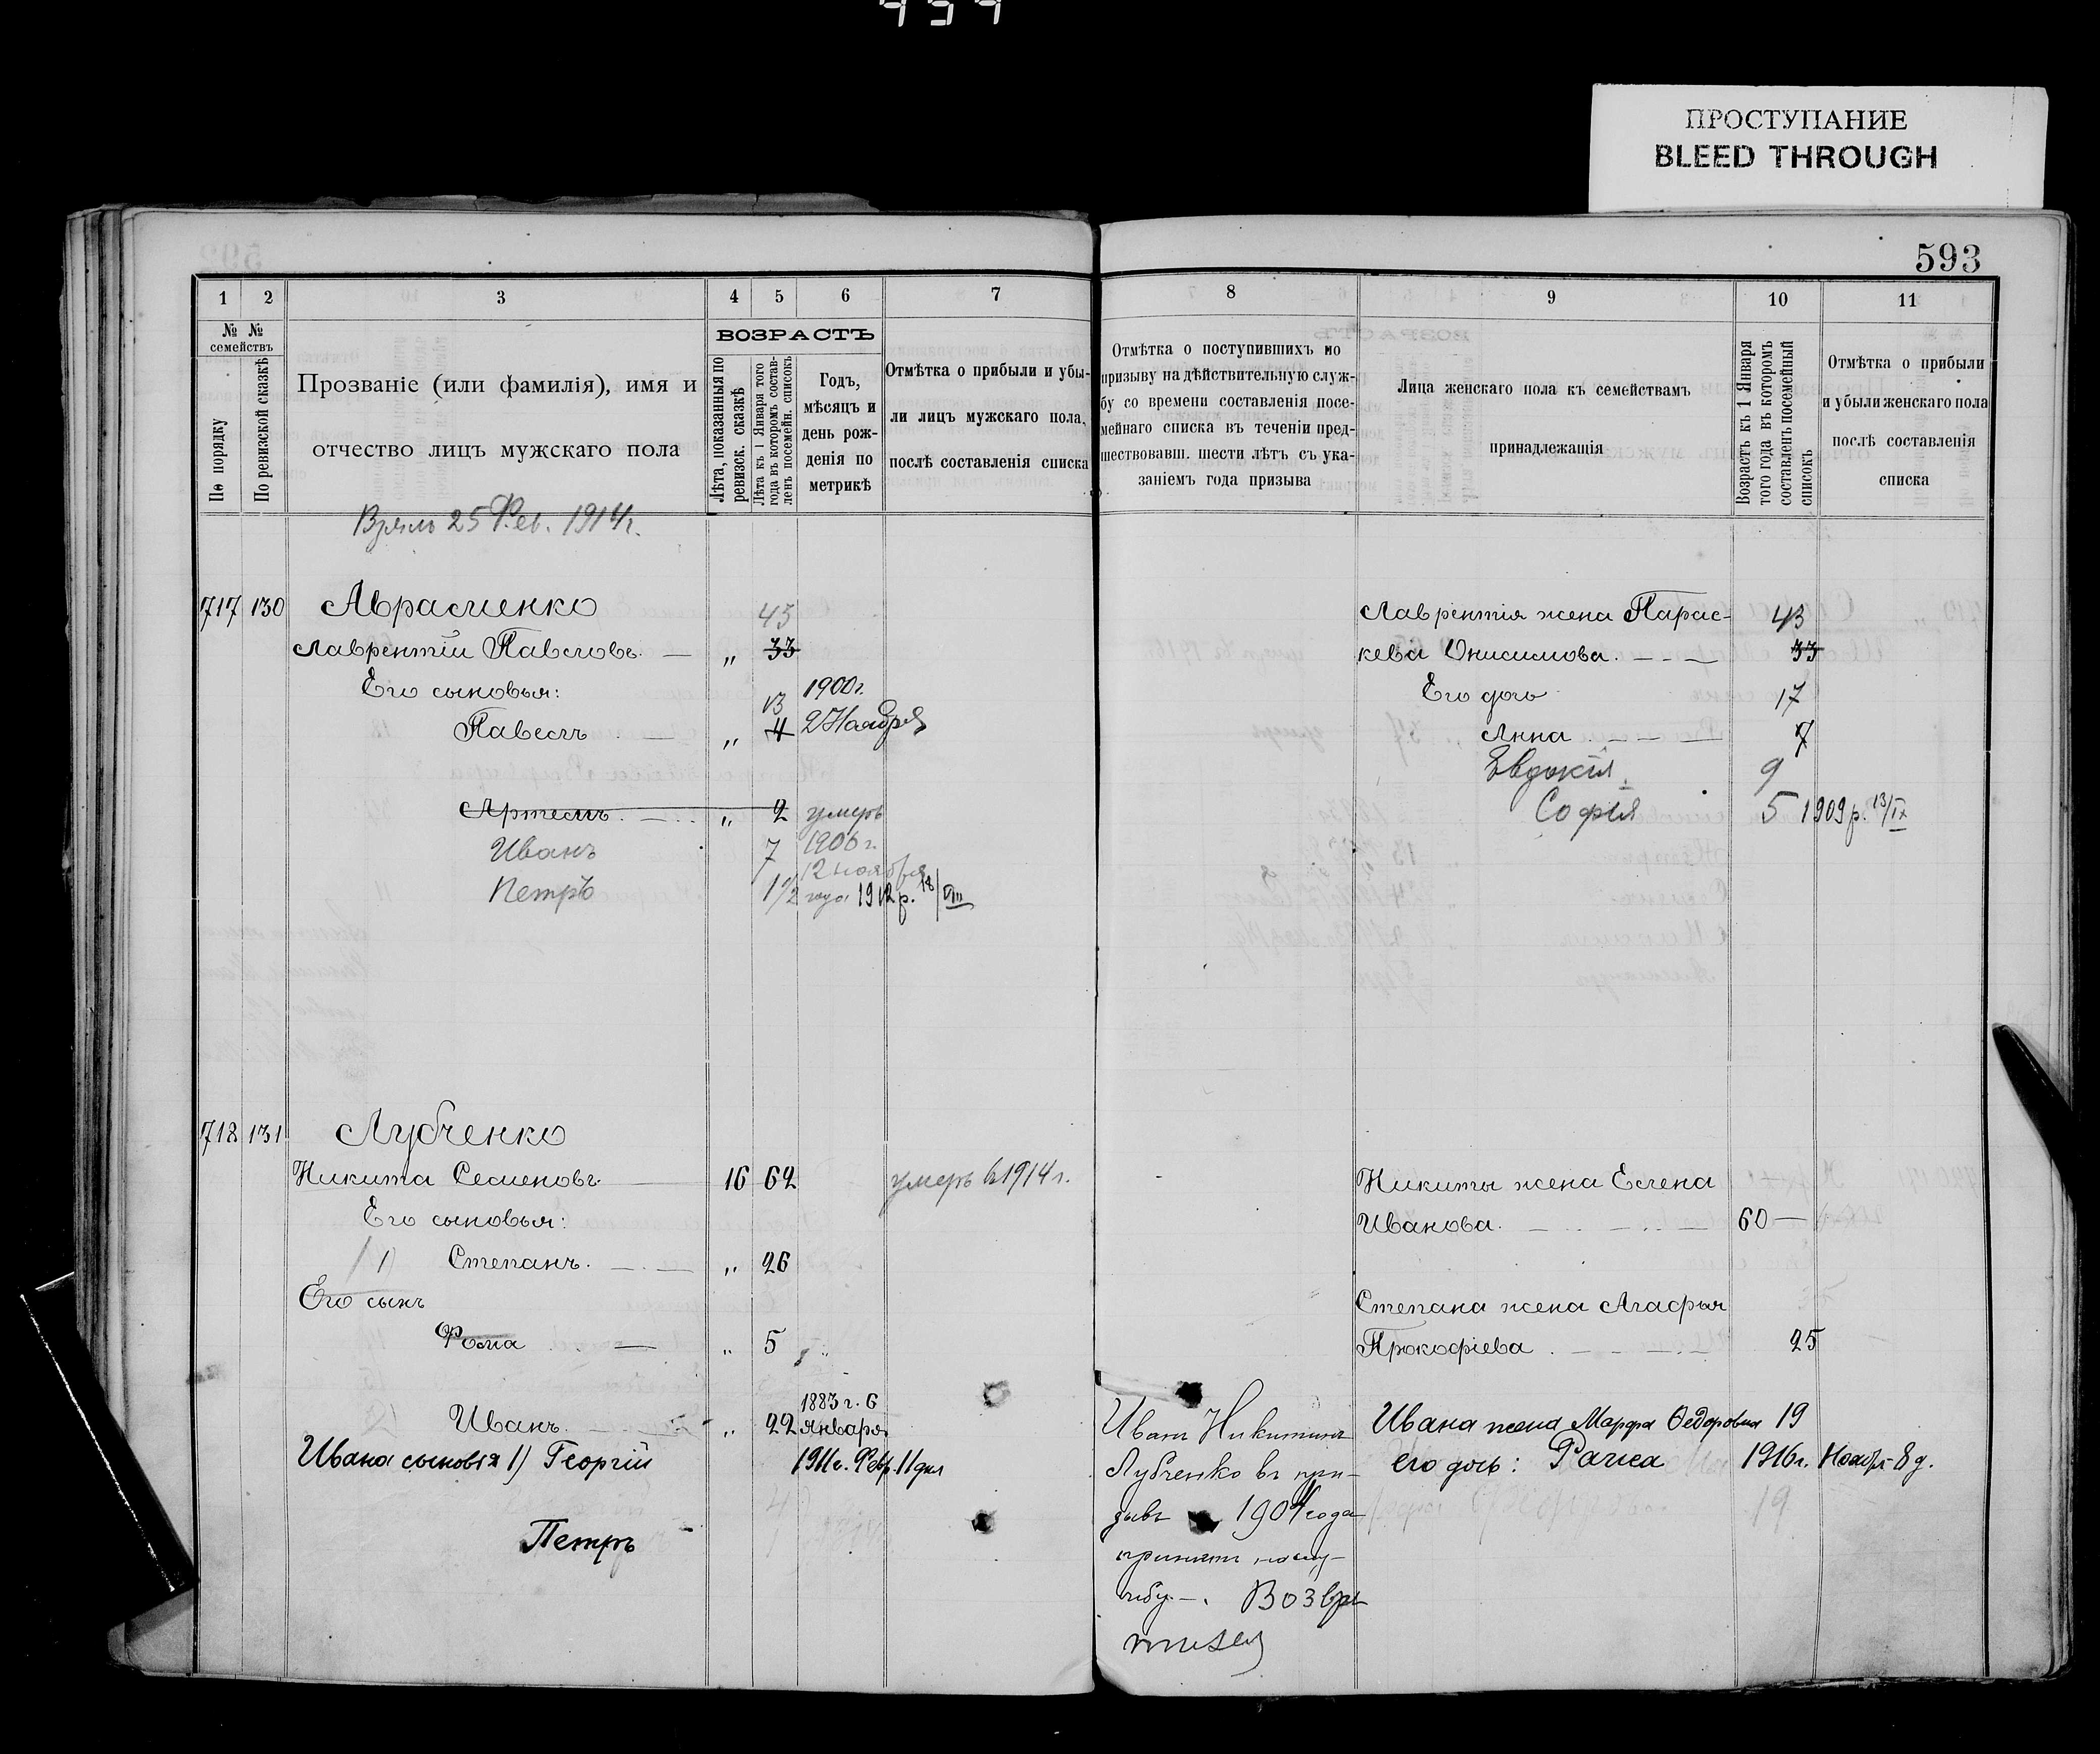 ПРОСТУПАНИЕ
BLEED THROUGH
593
1 2 3 4 5 6 7 8 9 10 11
№ № семействъ
По порядку
По ревизской сказкѣ
Прозваніе (или фамилія), имя и
отчество лицъ мужскаго пола
ВОЗРАСТЪ
Лѣта, показанныя по
ревизск. сказкѣ
Лѣта къ 1 Января того
года въ которомъ состав-
ленъ посемейн. списокъ
Годъ,
мѣсяцъ и
день рож-
денія по
метрикѣ
Отмѣтка о прибыли и убы-
ли лицъ мужскаго пола,
послѣ составленія списка
Отмѣтка о поступившихъ по
призыву на дѣйствительную служ-
бу со времени составленія посе-
мейнаго списка въ теченіи пред-
шествовавш. шести лѣтъ съ ука-
заніемъ года призыва
Лица женскаго пола къ семействамъ
принадлежащія
Возрастъ къ 1 Января
того года въ которомъ
составленъ посемейный
списокъ
Отмѣтка о прибыли
и убыли женскаго пола
послѣ составленія
списка
25 Фев. 1914г.
717 130 Авраменко 45
Лаврентій Павловъ. — „ 33
Его сыновья: 1900г.
13
Павелъ — „ 4 2 Ноября
Артемъ. — „ 2 умеръ
Иванъ 7 1906г.
12 ноября
Петръ 1½ года 1912 р. 18/VIII
Лаврентія жена Парас- 43
кева Онисимова. — 33
Его дочь 17
Анна — 7
Евдокія 9
Софія 5 1909 р. 13/IX
718 131 Лубченко
Никита Семеновъ 16 62 умеръ в 1914г.
Его сыновья:
1) Степанъ. — „ 26
Его сынъ
Фома — „ 5
1883г. 6
Иванъ. — „ 22 Января
Ивана сыновья 1) Георгій 1911г. Февр. 11 дня
Петръ
Иванъ Никитинъ
Лубченко въ при-
зывъ 1904 года
принятъ на слу-
жбу —. Возвра
тился
Никиты жена Елена
Иванова. — 60 —
Степана жена Агафья
Прокофіева — 25
Ивана жена Марфа Федоровна 19
его дочь: Раиса 1916г. Ноябр. 8 д.
19